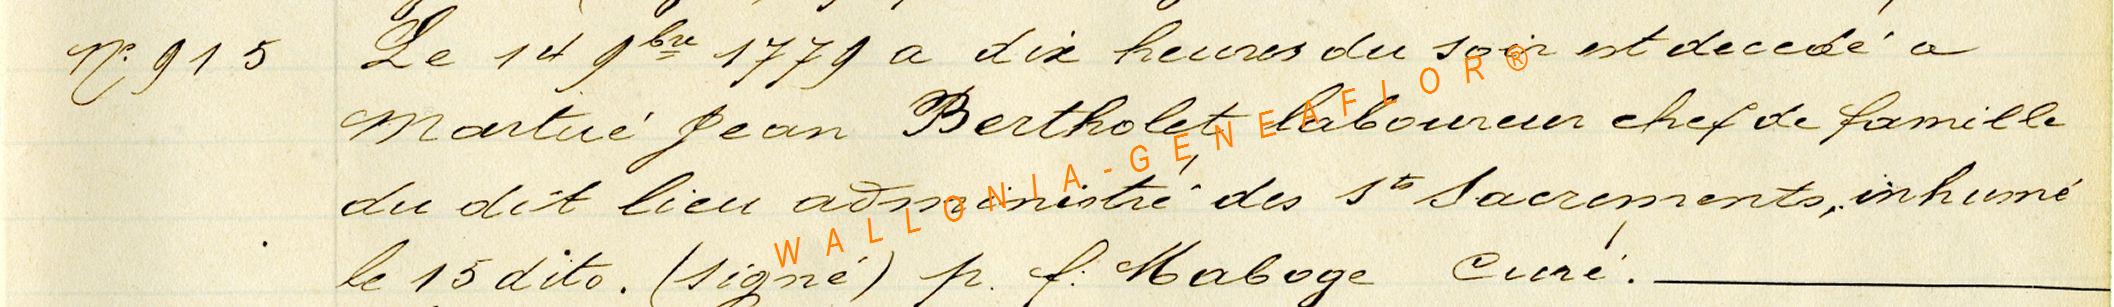 N° 915 Le 14 9bre 1779 a dix heures du soir est decedé a
Martué Jean Bertholet, laboureur chef de famille
du dit lieu administré des Sts Sacrements, inhumé
le 15 dito. (signé) p. f. Maboge Curé.
WALLONIA-GENEAFLOR®